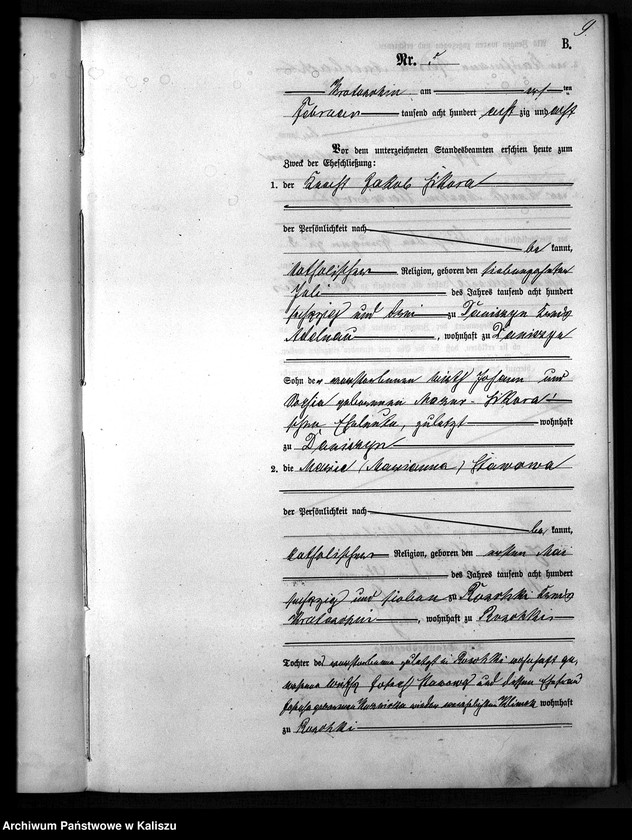 9.
B.
Nr. 5
Krotoschin am ersten
Februar tausend acht hundert acht zig und acht
Vor dem unterzeichneten Standesbeamten erschien heute zum
Zweck der Eheschließung:
1. der Knecht Jakob Sikora
der Persönlichkeit nach
be kannt,
katholischer Religion, geboren den siebenzehnten
Juli des Jahres tausend acht hundert
sechzig und drei zu Daniszyn Kreis
Adelnau, wohnhaft zu Daniszyn
Sohn der verstorbenen Wirth Johann und
geborenen Mazur - Sikora
schen Eheleute, zuletzt wohnhaft
zu Daniszyn
2. die Marie (Marianna) Stawowa
der Persönlichkeit nach
be kannt,
katholischer Religion, geboren den ersten Mai
des Jahres tausend acht hundert
sechzig und sieben zu Roschki Kreis
Krotoschin, wohnhaft zu Roschki
Tochter des verstorbenen zuletzt in Roschki wohnhaft ge-
wesenen Wirths Josef Stawowy und dessen Ehefrau
geborenen wohnhaft
zu Roschki
Archiwum Państwowe w Kaliszu